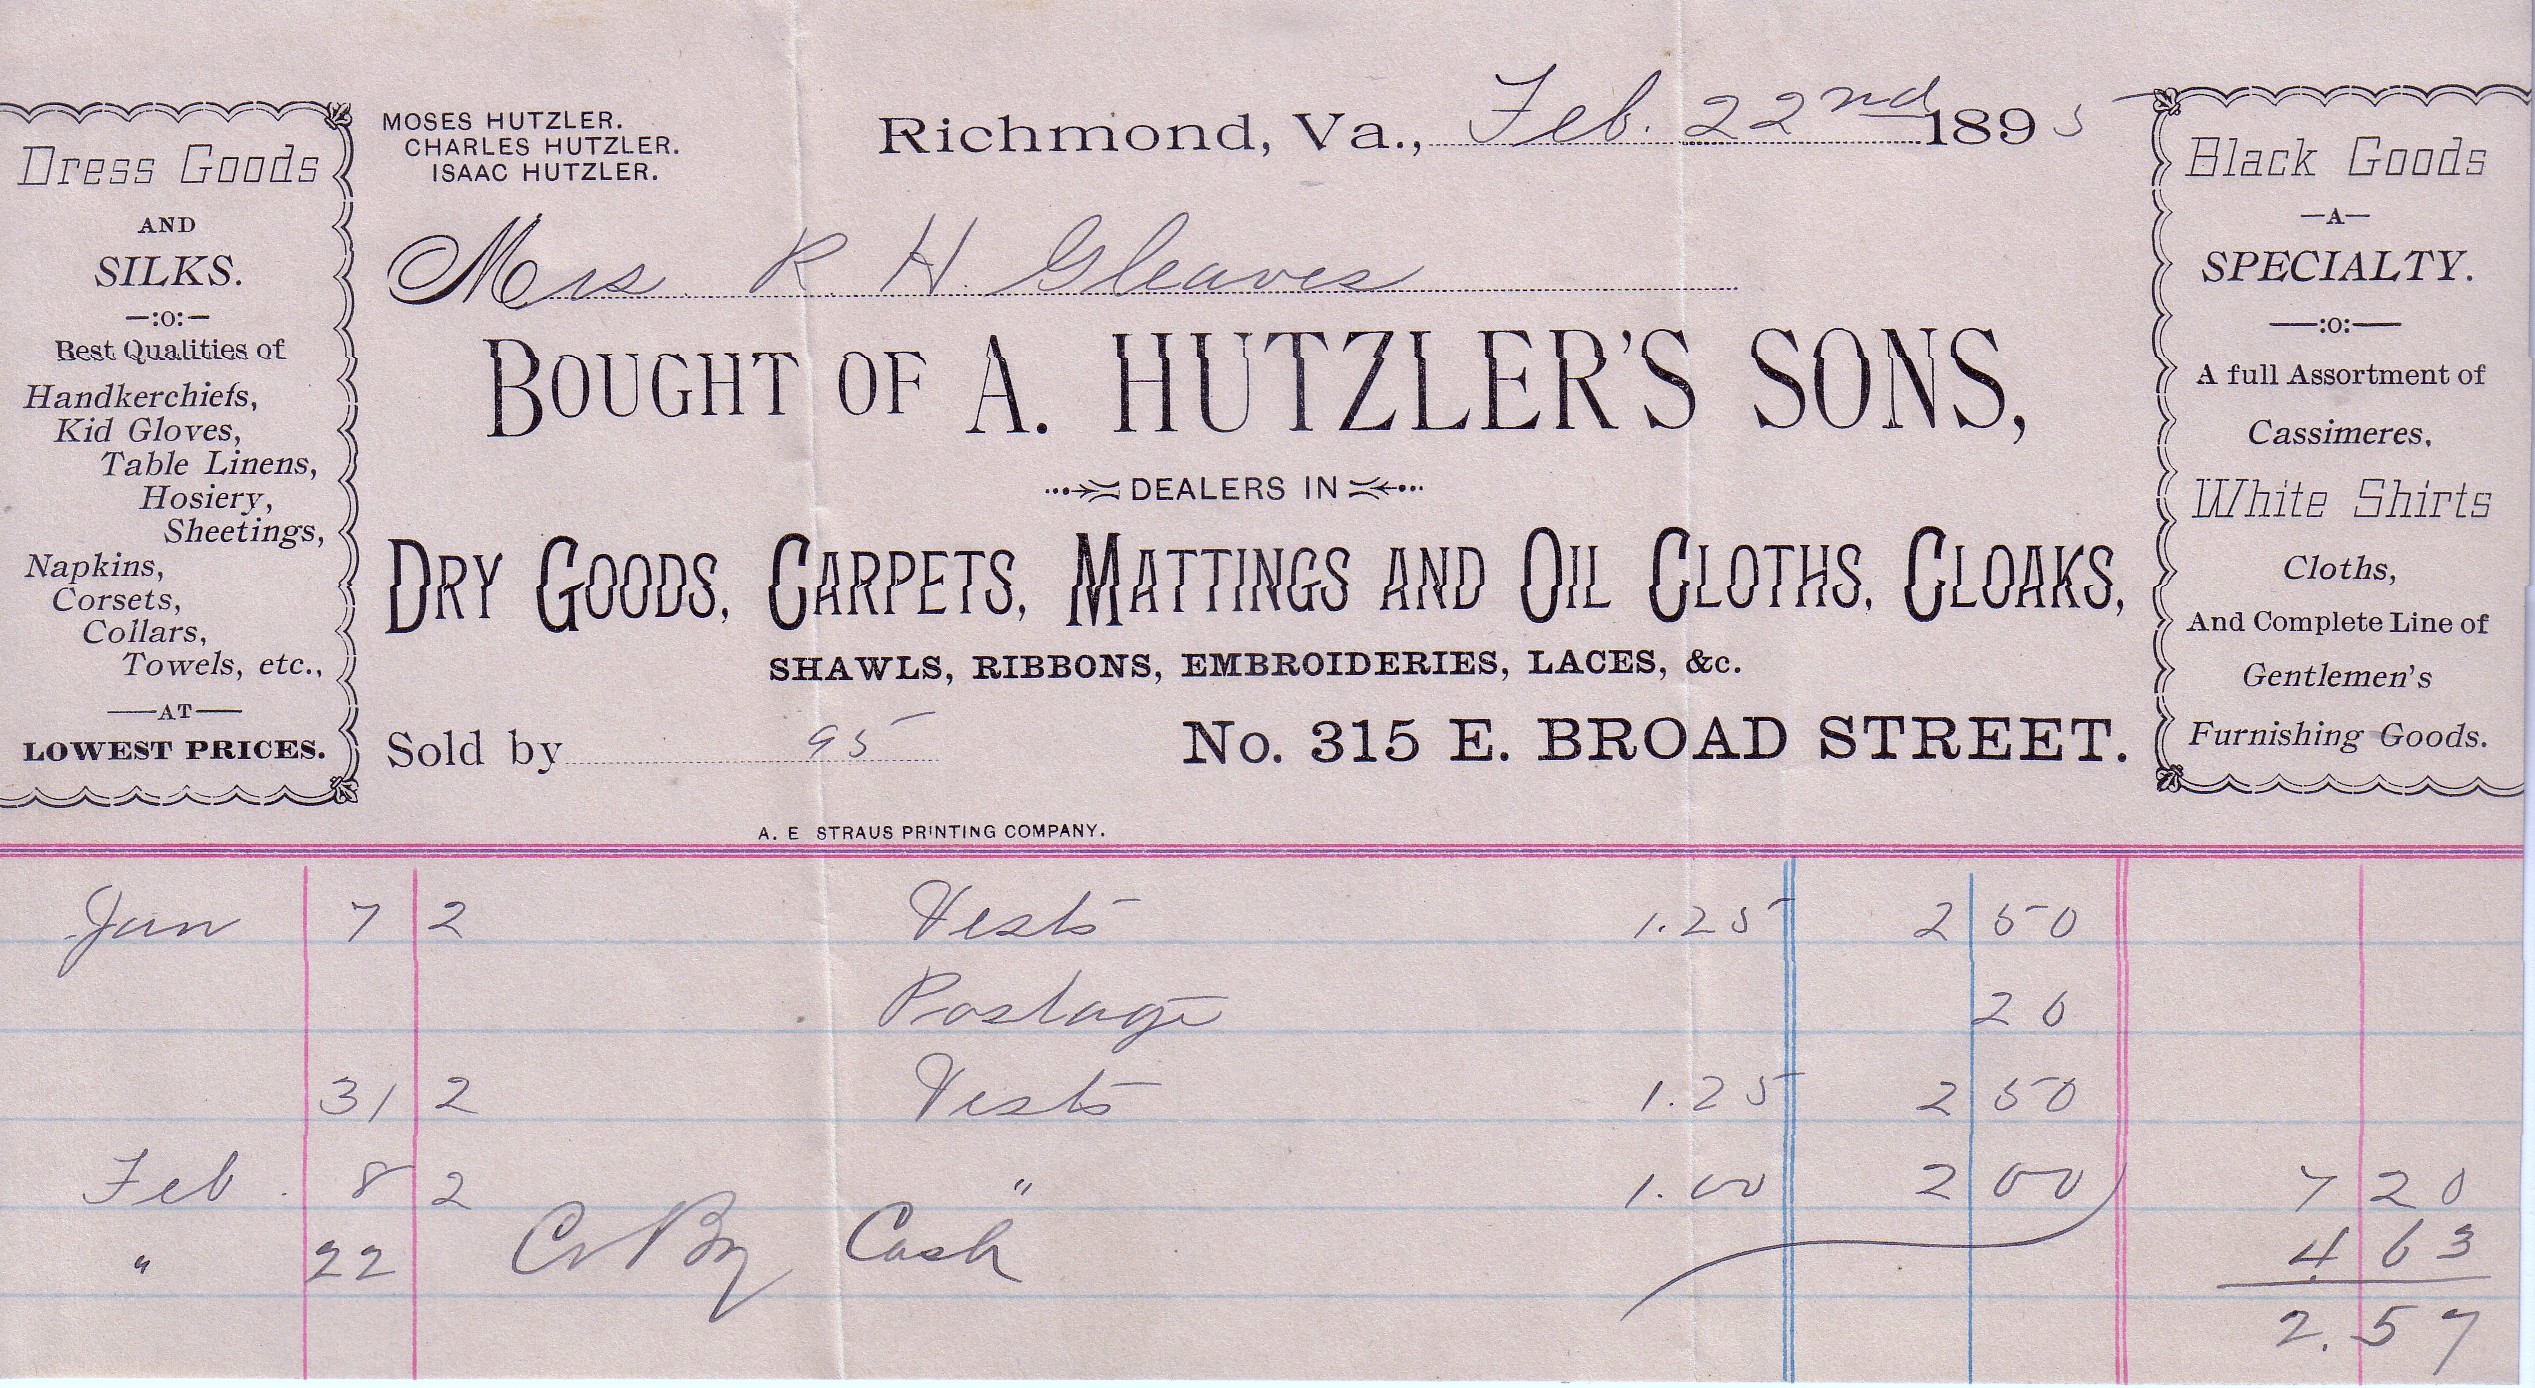 Dress Goods
AND
SILKS.
—:o:—
Best Qualities of
Handkerchiefs,
Kid Gloves,
Table Linens,
Hosiery,
Sheetings,
Napkins,
Corsets,
Collars,
Towels, etc.,
—AT—
LOWEST PRICES.
MOSES HUTZLER.
CHARLES HUTZLER.
ISAAC HUTZLER.
Richmond, Va., Feb. 22nd 1895
Mrs. R. H. Gleaves
BOUGHT OF A. HUTZLER'S SONS,
DEALERS IN
DRY GOODS, CARPETS, MATTINGS AND OIL CLOTHS, CLOAKS,
SHAWLS, RIBBONS, EMBROIDERIES, LACES, &c.
Sold by 95 No. 315 E. BROAD STREET.
A. E STRAUS PRINTING COMPANY.
Black Goods
—A—
SPECIALTY.
—:o:—
A full Assortment of
Cassimeres,
White Shirts
Cloths,
And Complete Line of
Gentlemen's
Furnishing Goods.
Jan 7 2 Vests 1.25 2 50
Postage 20
31 2 Vests 1.25 2 50
Feb. 8 2 " 1.00 2 00 7 20
" 22 Cr By Cash 4 63
2.57